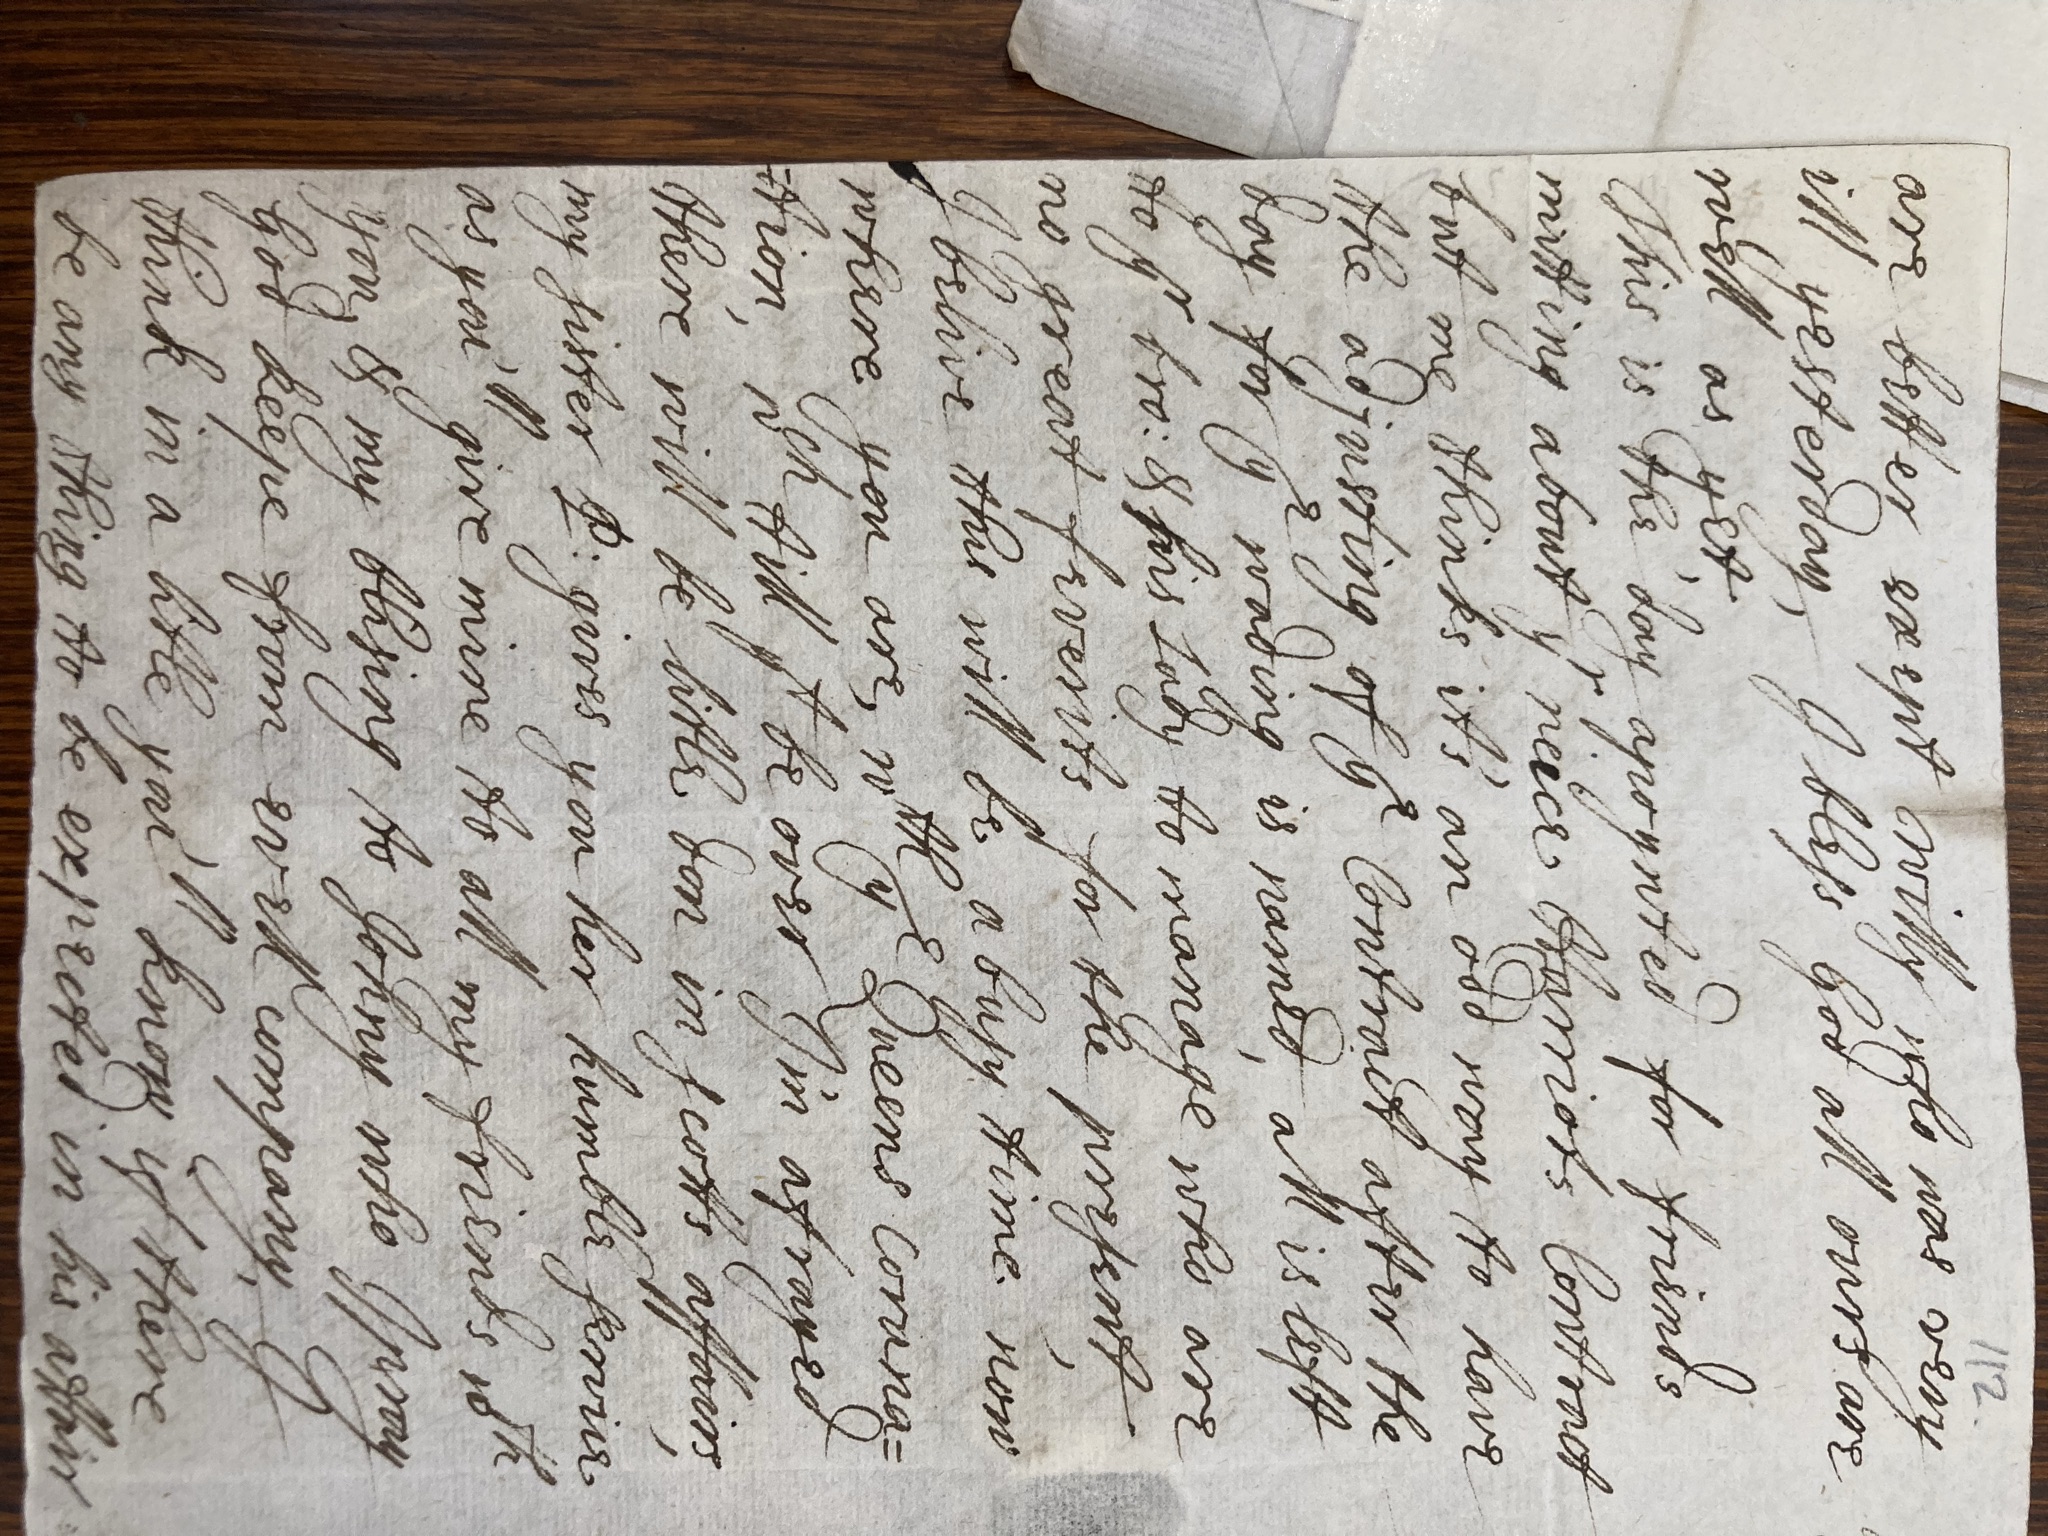 112.
are better exept willy who was very
ill yesterday, I bless God all ours are
well as yet,
This is the day apoynted for friends
mitting about yr neice Harriots Contract
but me thinks it's an odd way to have
the adjusting of ye Contract after the
day for ye wading is named, all is left
to yr bro: & his Lady to manage who are
no great feverits for the present,
I belive this will be a busy time now
where you are, wth ye Queens Corana=
=tion, wch till yt be over I'm afrayed
there will be litle don in scotts affairs,
my sister P: gives you her humble service
as you'll give mine to all my friends wth
you, & my blising to Johny who I pray
God keepe from evell company, I
think in a litle you'll know if there
be any thing to be expected in his affair